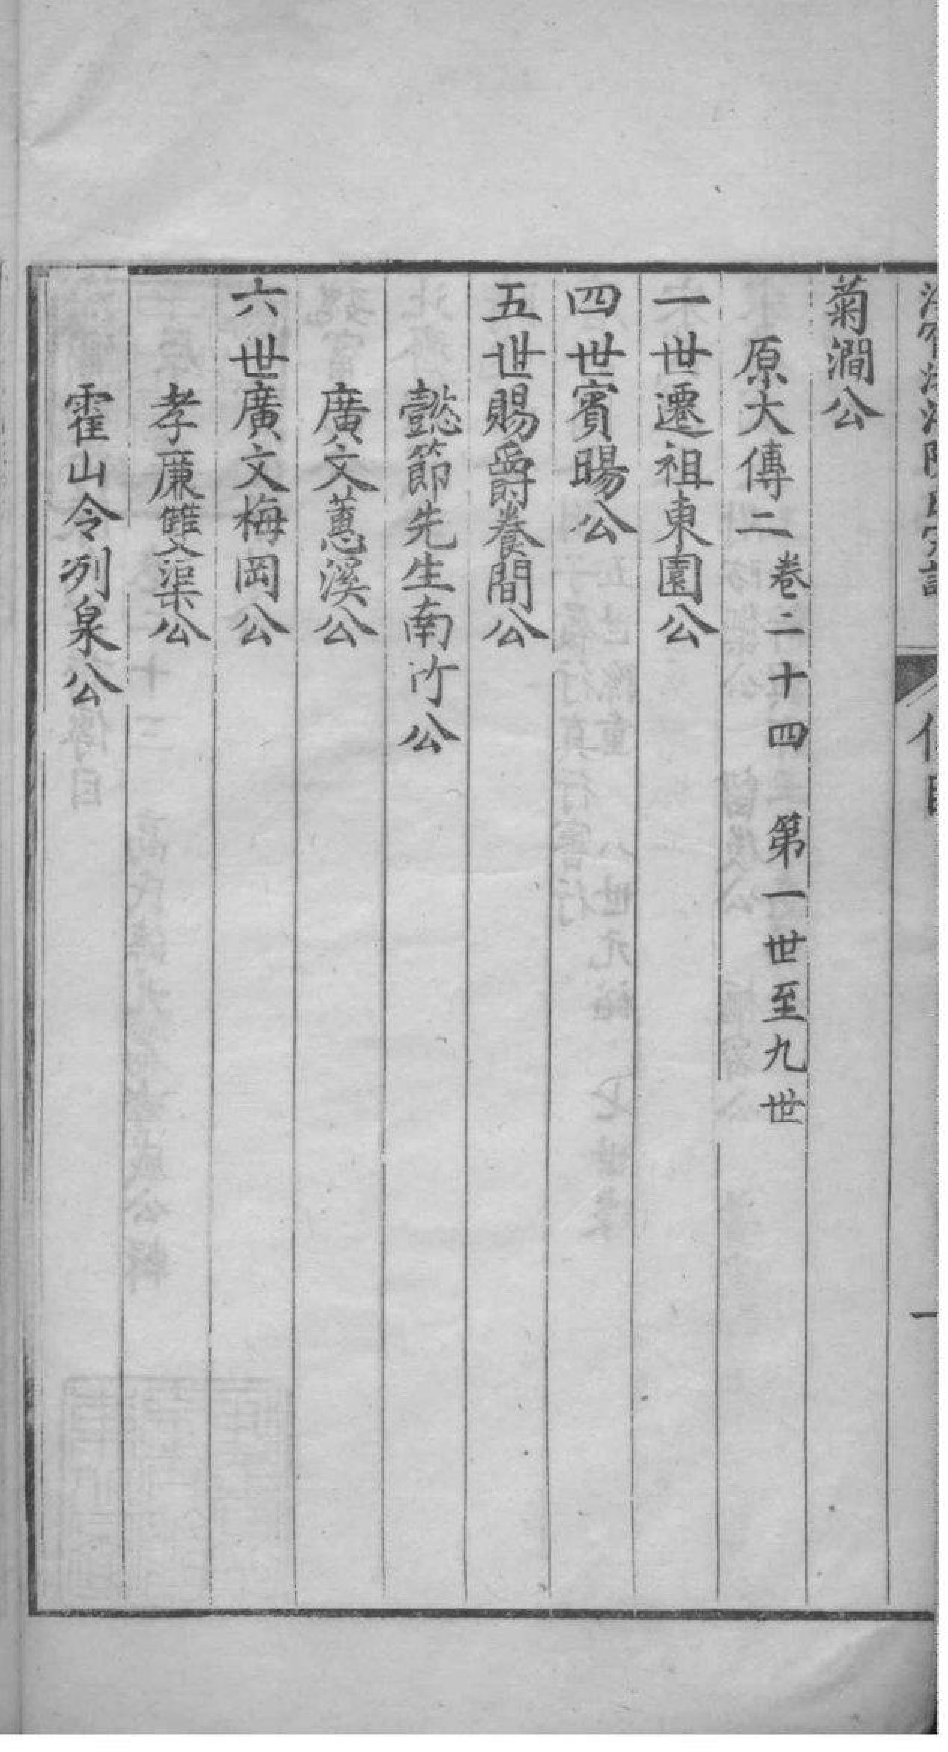 菊澗公
原大傳二 卷二十四 第一世至九世
一世遷祖東園公
四世賓暘公
五世賜爵養間公
懿節先生南竹公
廣文蕙溪公
六世廣文梅岡公
孝廉雙渠公
霍山令冽泉公